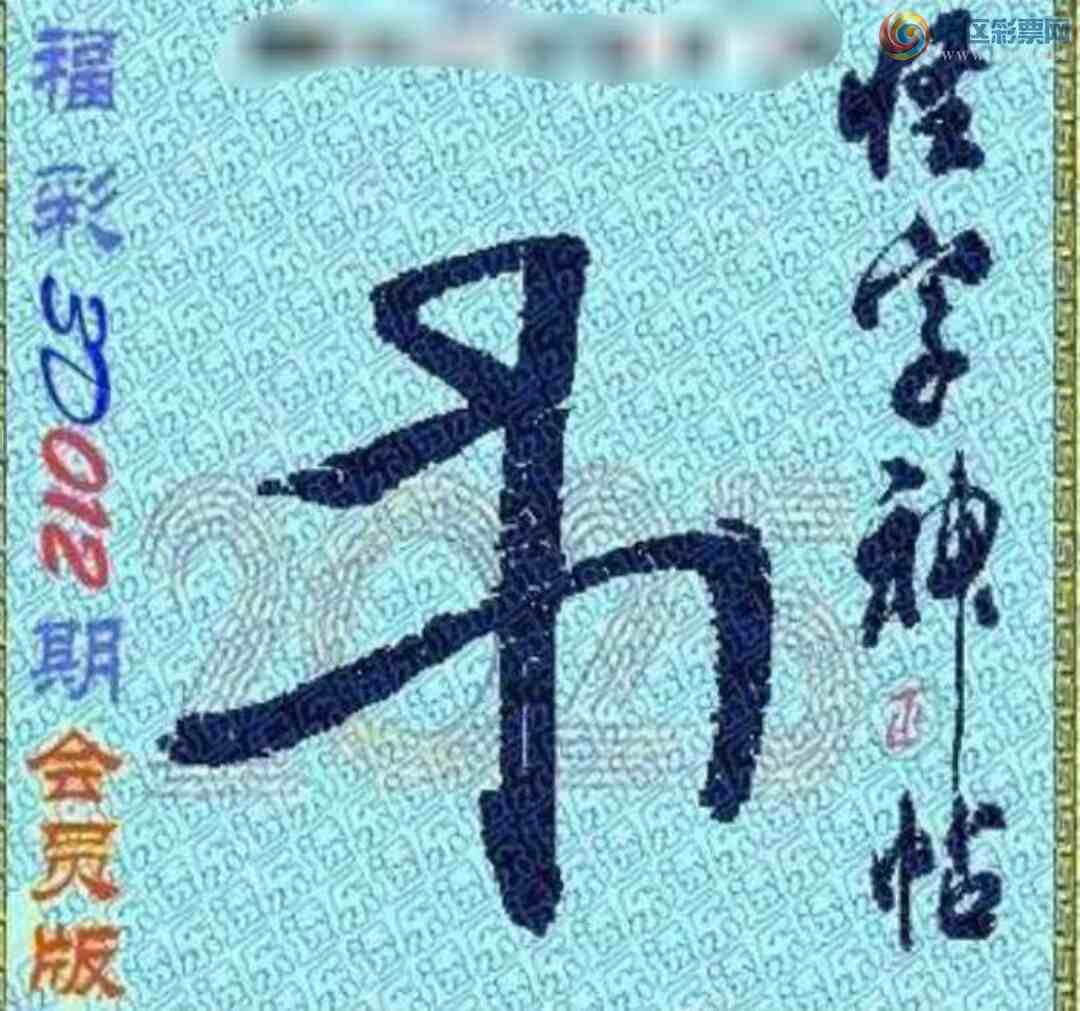 福彩3D012期会员版
2025
怪字神帖
正
区彩票网